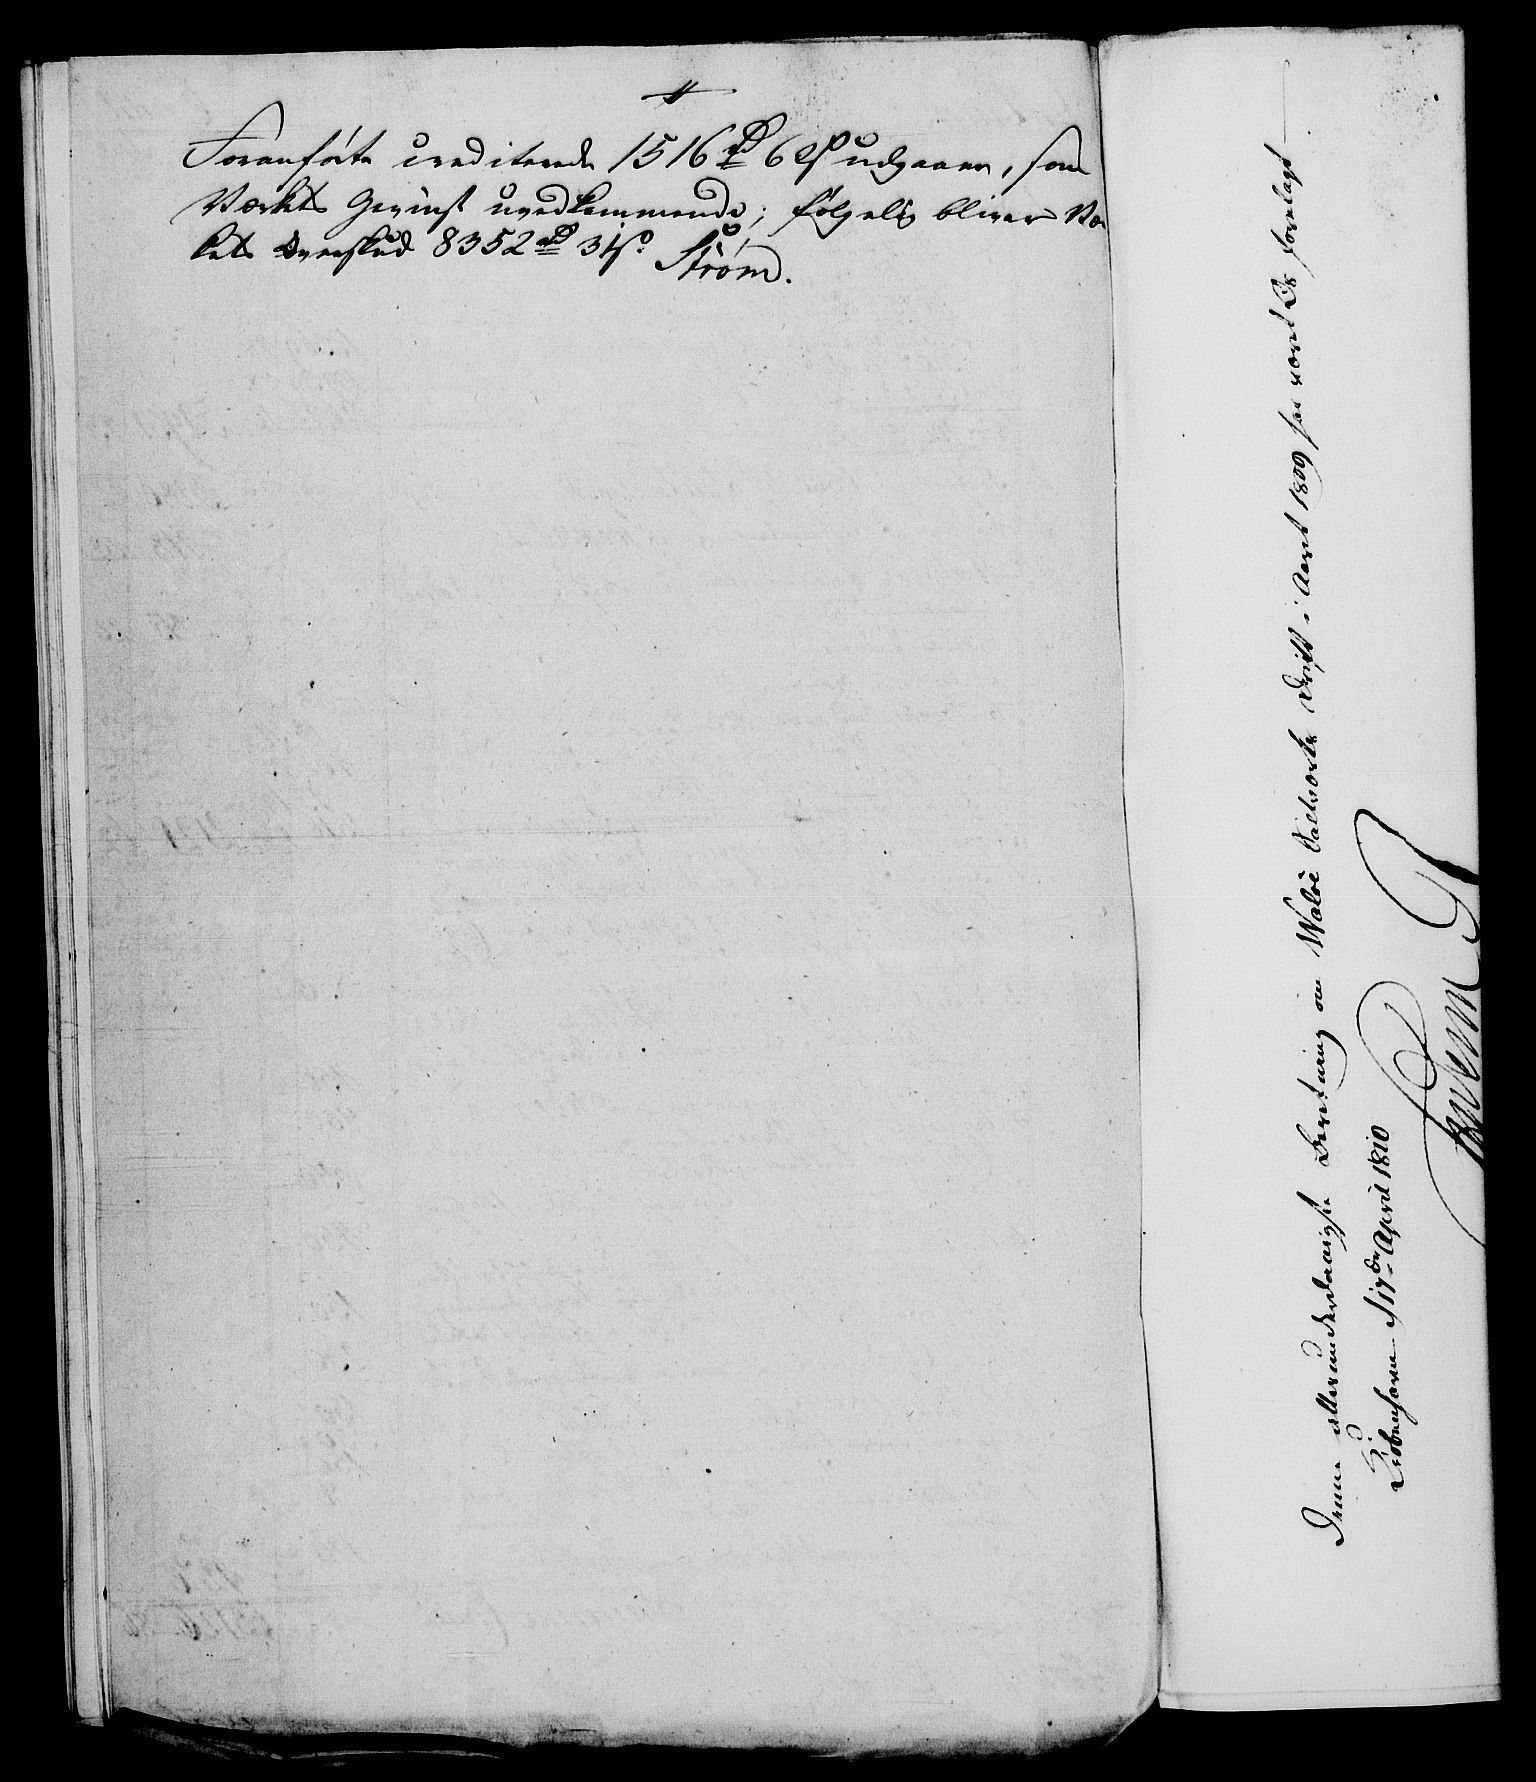 Foranførte crediterede 1516 rd 62 s udgaaer, som
Værkets Gevinst uvedkommende; følgelig bliver Vær-
kets Overskud 8352 rd 31 s.
Strøm.
Denne allerunderdanigste Beretning om Walöe Saltværks Drift i Aaret 1809 har været Os forelagt
Kiöbenhavn d 17de April 1810
Frederik